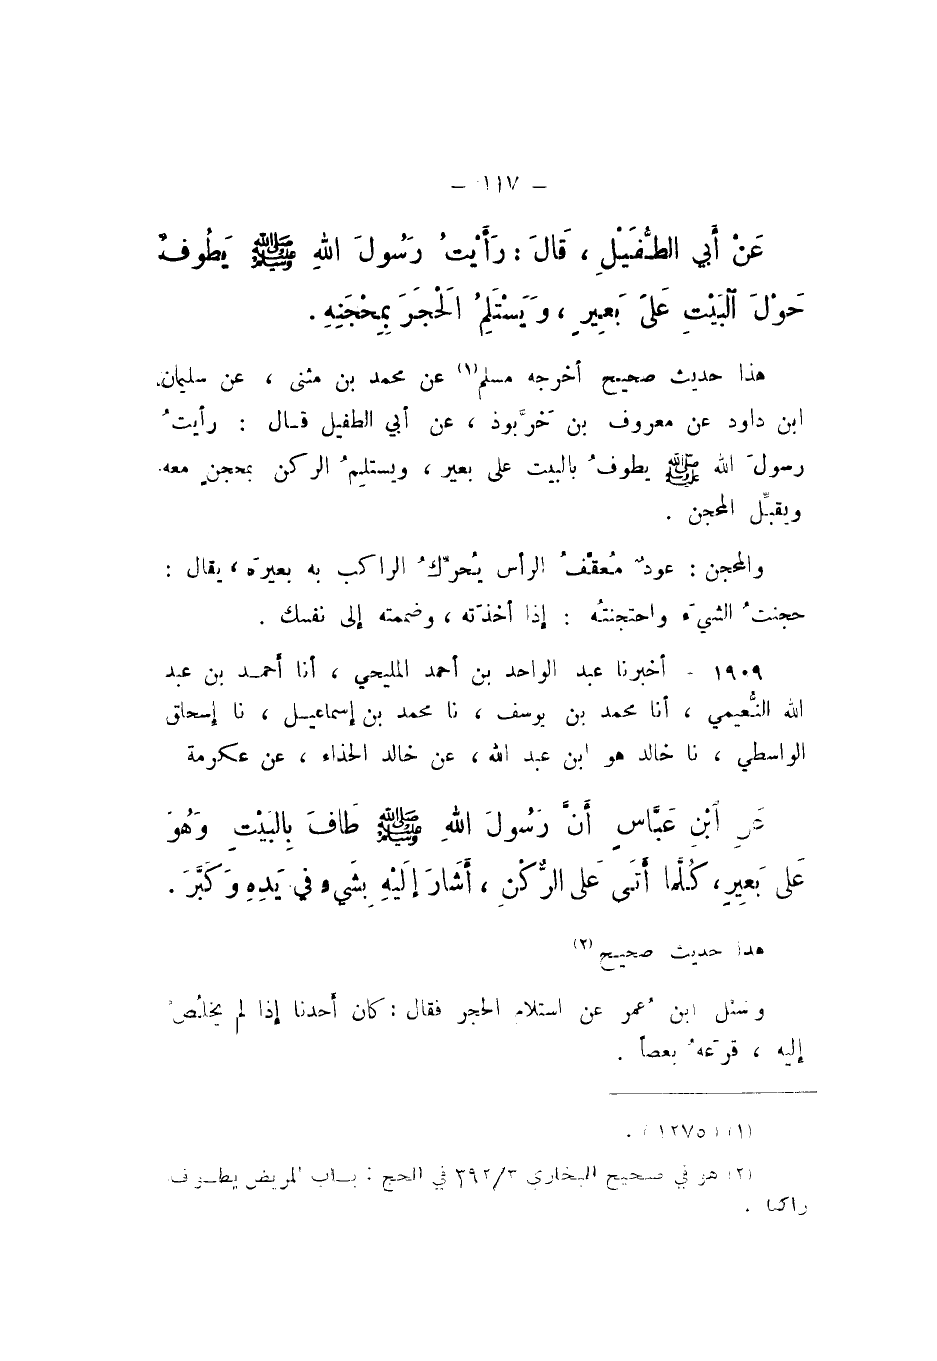 – ١١٧ –
عَنْ أَبِي الطُّفَيْلِ ، قَالَ : رَأَيْتُ رَسُولَ اللهِ ﷺ يَطُوفُ
حَوْلَ ٱلْبَيْتِ عَلَى بَعِيرٍ ، وَيَسْتَلِمُ الْحَجَرَ بِمِحْجَنِهِ .
هذا حديث صحيح أخرجه مسلم(١) عن محمد بن مثنى ، عن سليمان
ابن داود عن معروف بن خَرَّبوذ ، عن أبي الطفيل قال : رأيتُ
رسولَ الله ﷺ يطوفُ بالبيت على بعير ، ويستلِمُ الركن بمحجنٍ معه
ويقبِّل المحجن .
والمحجن : عودٌ مُعقَّفُ الرأس يُحرِّكُ الراكب به بعيرَه ، يقال :
حجنتُ الشيَء واحتجنتُه : إذا أخذتَه ، وضممته إلى نفسك .
١٩٠٩ - أخبرنا عبد الواحد بن أحمد المليحي ، أنا أحمد بن عبد
الله النُّعيمي ، أنا محمد بن يوسف ، نا محمد بن إسماعيل ، نا إسحاق
الواسطي ، نا خالد هو ابن عبد الله ، عن خالد الحذاء ، عن عكرمة
عَنِ ٱبْنِ عَبَّاسٍ أَنَّ رَسُولَ اللهِ ﷺ طَافَ بِالبَيْتِ وَهُوَ
عَلَى بَعِيرٍ ، كُلَّمَا أَتَى عَلَى الرُّكْنِ ، أَشَارَ إِلَيْهِ بِشَيْءٍ فِي يَدِهِ وَكَبَّرَ .
هذا حديث صحيح(٢)
وسئل ابن عُمر عن استلام الحجر فقال : كان أحدنا إذا لم يخلُصْ
إليه ، قرَعهُ بعصاً .
(١) (١٢٧٥) .
(٢) هو في صحيح البخاري ٣٩٢/٣ في الحج : باب المريض يطوف
راكبا .